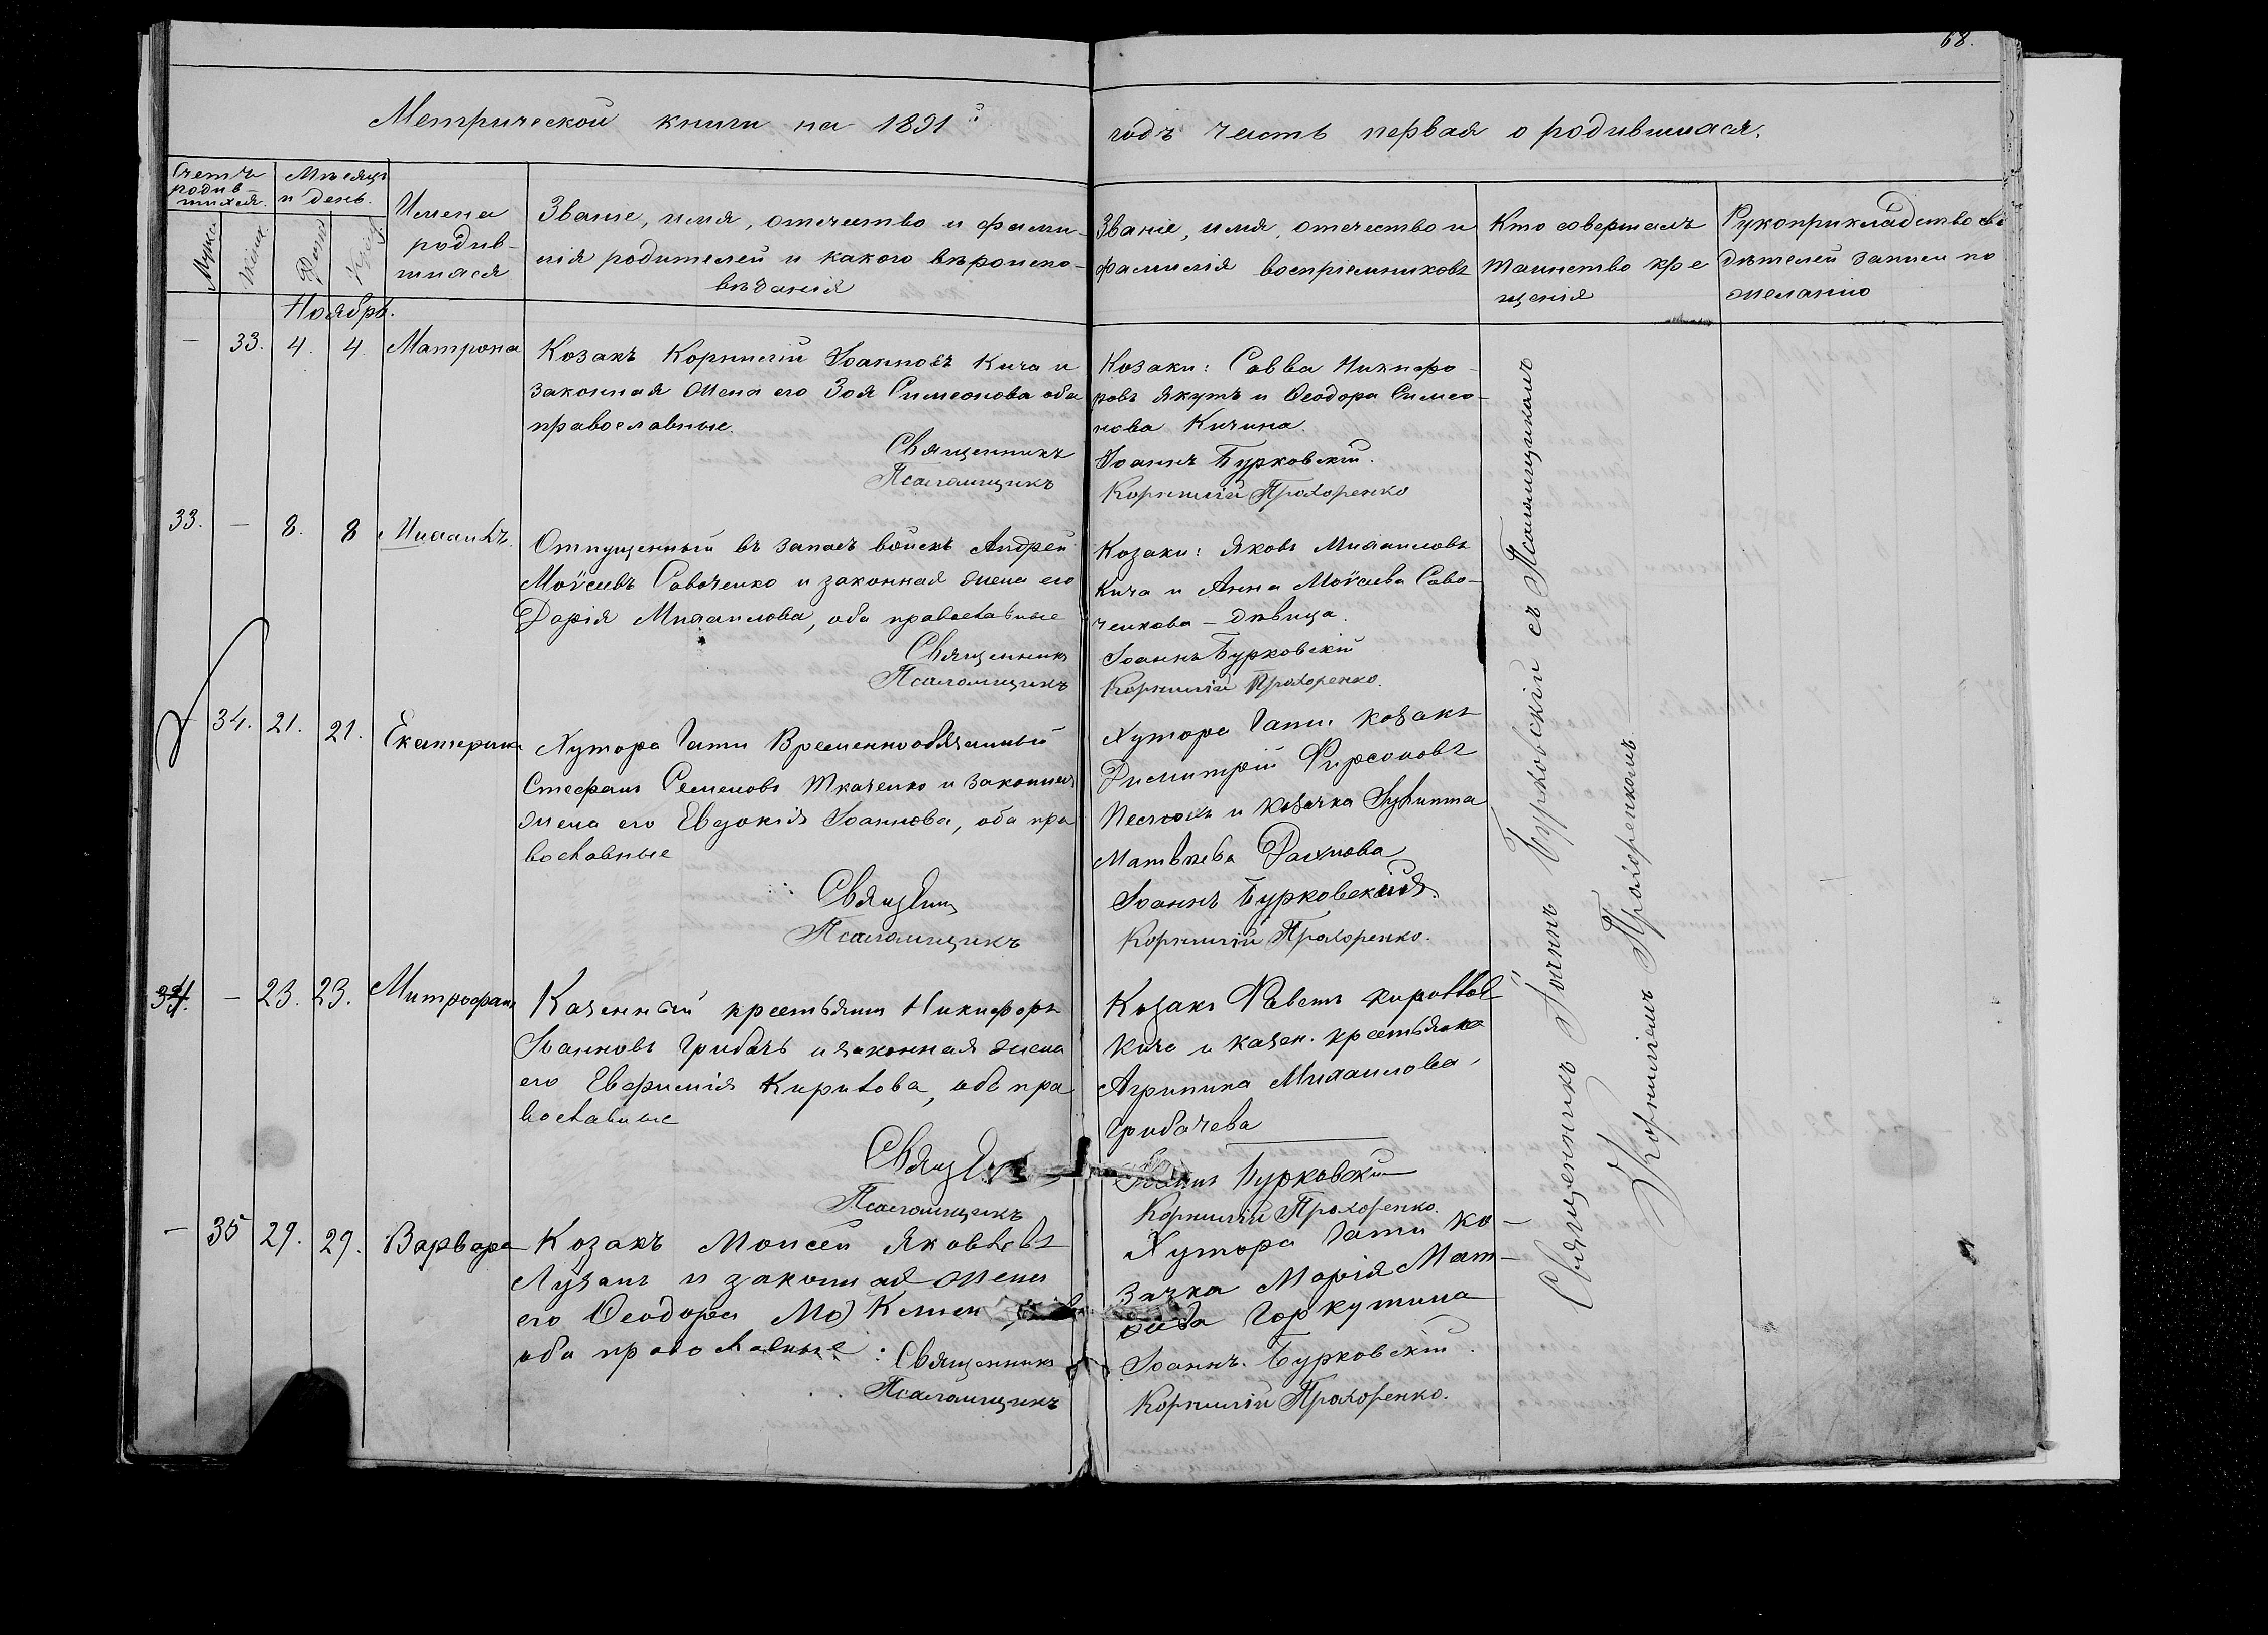 68.
Метрической книги на 1891й годъ часть первая о родившихся.
Счетъ родив-
шихся.
Мѣсяцъ
и день.
Мужеск.
Женск.
Рожд.
Крещ.
Имена
родив-
шихся
Званіе, имя, отчество и фами-
лія родителей и какого вѣроиспо-
вѣданія
Званіе, имя, отчество и
фамилія воспріемниковъ
Кто совершалъ
таинство кре
щенія
Рукоприкладство сви
дѣтелей записи по
желанію
Ноябрь.
— 33. 4. 4. Матрона
Козакъ Корнилій Іоанновъ Кича и
законная жена его Зоя Симеонова оба
православные.
Священникъ
Псаломщикъ
Козаки: Савва Никифо-
ровъ Якутъ и Ѳеодора Симео-
нова Кичина.
Іоаннъ Бурковскій.
Корнилій Прохоренко
33. — 8. 8 Михаилъ.
Отпущенный въ запасъ войскъ Андрей
Моѵсеевъ Савоченко и законная жена его
Дарія Михаилова, оба православные
Священникъ
Псаломщикъ
Козаки: Яковъ Михаиловъ
Кича и Анна Моѵсеева Саво-
ченкова — дѣвица.
Іоаннъ Бурковскій
Корнилій Прохоренко.
— 34. 21. 21. Екатерина
Хутора Гати Временнообязанный
Стефанъ Семеновъ Ткаченко и законная
жена его Евдокія Іоаннова, оба пра
вославные
Священ
Псаломщикъ
Хутора Гати козакъ
Димитрій Фирсоновъ
и козачка
Матвѣева
Іоаннъ Бурковскій.
Корнилій Прохоренко.
34. — 23. 23. Митрофанъ
Казенный крестьянинъ Никифоръ
Іоанновъ Грибачъ и законная жена
его Евфимія Кирилова, оба пра
вославные
Священ
Псаломщикъ
Козакъ Кириллов
Кича и казен. крестьянка
Агрипина Михаилова
Грибачева
Іоаннъ Бурковскій
Корнилій Прохоренко.
— 35 29. 29. Варвара
Козакъ Моисей Яковлевъ
Лузанъ и законная жена
его Ѳеодора
оба православные:
Священникъ
Псаломщикъ
Хутора Гати ко-
зачка Марія Мат-
Горкутина
Іоаннъ Бурковскій.
Корнилій Прохоренко.
Священникъ Іоаннъ Бурковскій съ Псаломщикомъ
Корниліемъ Прохоренкомъ